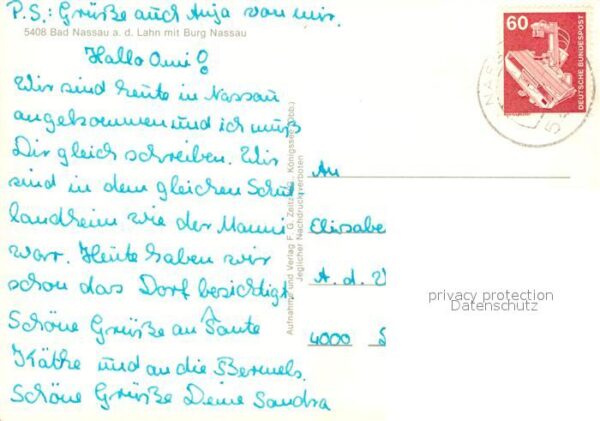 P.S.: Grüße auch Anja von mir.
5408 Bad Nassau a. d. Lahn mit Burg Nassau
Hallo Omi!
Wir sind heute in Nassau
angekommen und ich muß
Dir gleich schreiben. Wir
sind in dem gleichen Schul
landheim wie der Manni
warr. Heute haben wir
schon das Dorf besichtigt.
Schöne Grüße an Tante
Käthe und an die Bermels.
Schöne Grüße Deine Sandra
Aufnahme und Verlag F. G. Zeitz, Königssee
Jeglicher Nachdruck verboten
60
DEUTSCHE BUNDESPOST
An
Elisabe
A. d.
4000
privacy protection
Datenschutz